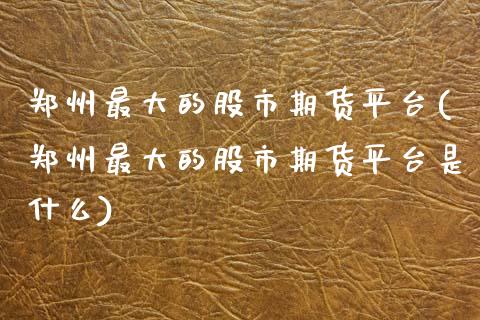 郑州最大的股市期货平台(
郑州最大的股市期货平台是
什么)